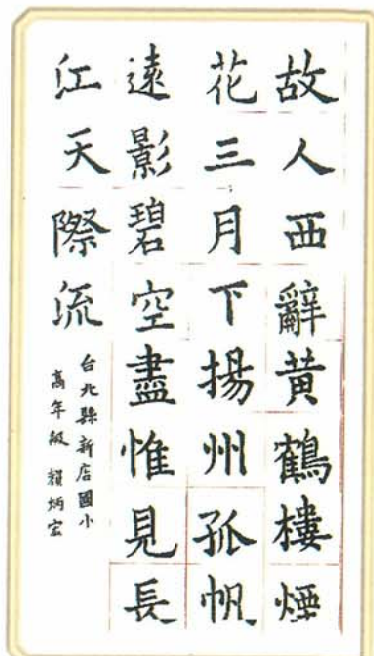 故人西辭黄鶴樓煙
花三月下揚州孤帆
遠影碧空盡惟見長
江天際流
台北縣新店國小
高年級 賴炳宏